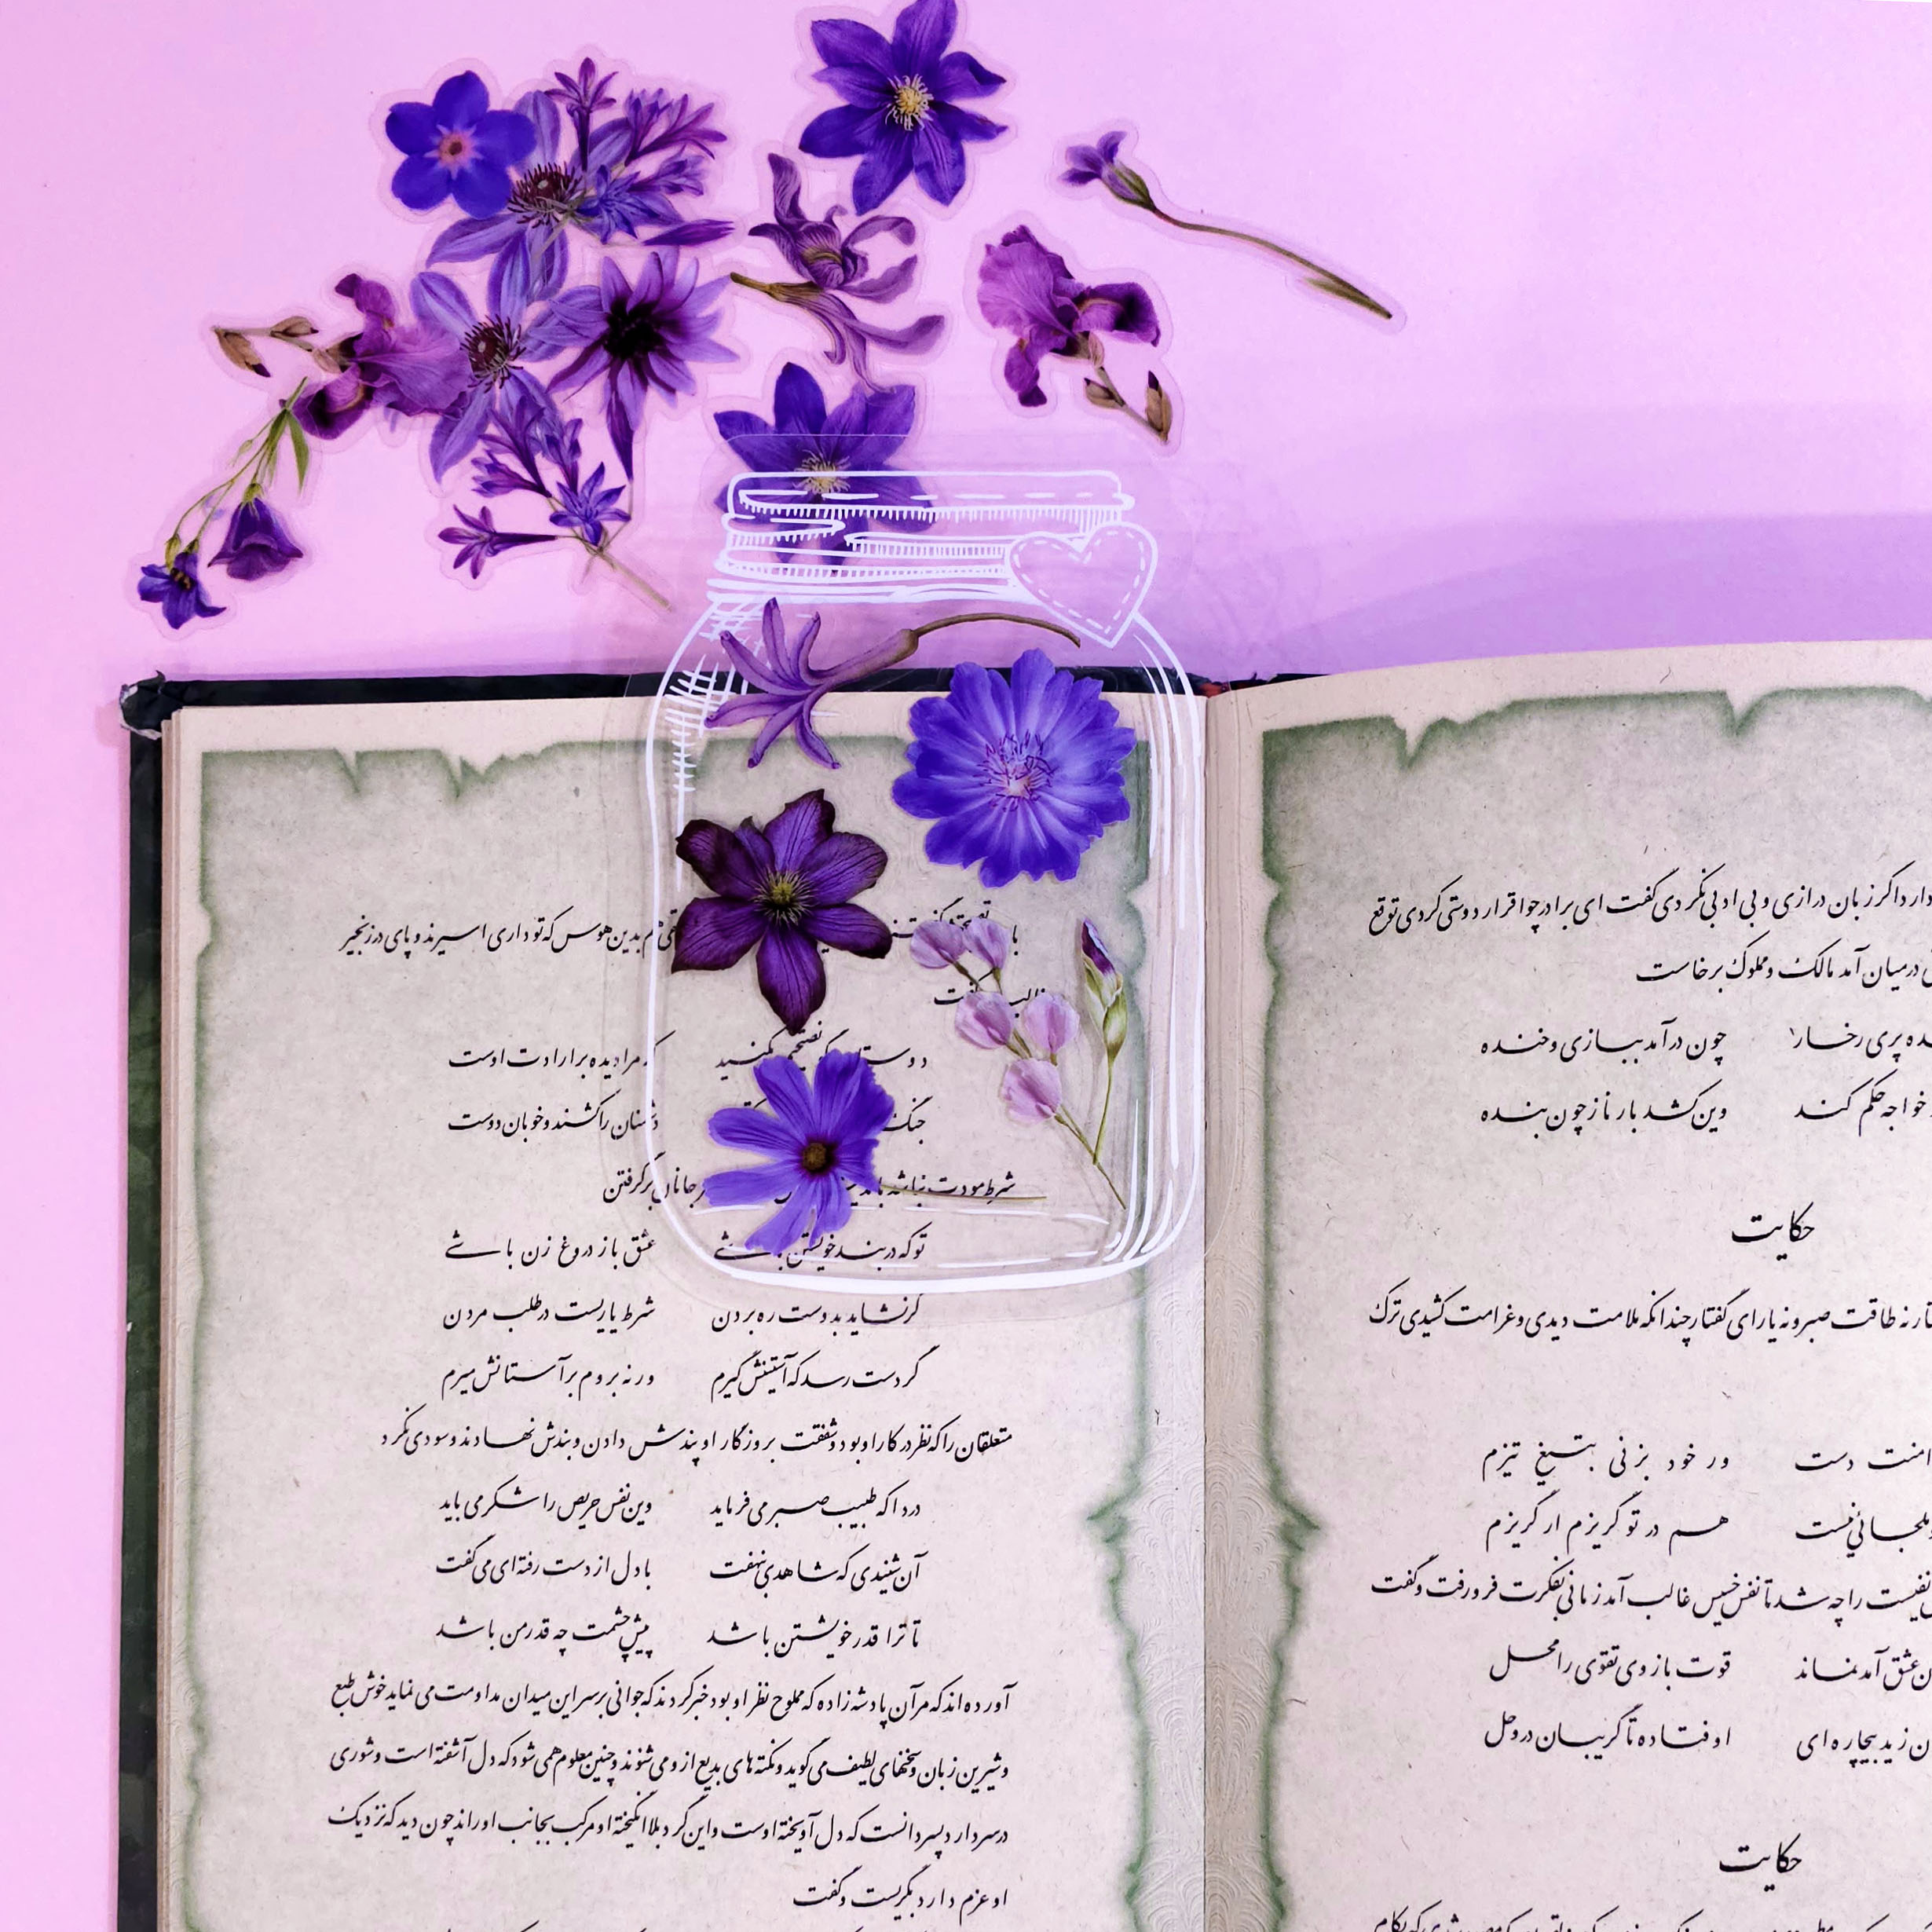 اگر زبان درازی و بی ادبی نکردی گفت ای برادر چو اقرار دوستی کردی توقع
درمیان آمد مالک و مملوک برخاست
پری رخسار چون درآمد ببازی و خنده
خواجه حکم کند وین کشد بار ناز چون بنده
حکایت
نه طاقت صبر و نه یارای گفتار چندانکه ملامت دیدی و غرامت کشیدی ترک
دست ور خود بزنی بتیغ تیزم
هم در تو گریزم ار گریزم
را چه شد تا نفس خسیس غالب آمد زمانی بفکرت فرو رفت و گفت
عشق آمد نماند قوت بازوی تقوی را محل
بیچاره ای اوفتاده تا گریبان در وحل
حکایت
بدین هوس که تو داری اسیرند و پای در زنجیر
دوستان گو نصیحتم مکنید که مرا دیده بر ارادت اوست
جنگ دشمنان را کشند و خوبان دوست
شرط مودت نباشد جانان برگرفتن
تو که در بند خویشتن باشی عشق باز دروغ زن باشی
گر نشاید بدوست ره بردن شرط یاریست در طلب مردن
گر دست رسد که آستینش گیرم ورنه بروم بر آستانش میرم
متعلقان را که نظر در کار او بود و شفقت بروزگار او پندش دادن و بندش نهادند و سودی نکرد
دردا که طبیب صبر می فرماید وین نفس حریص را شکر می باید
آن شنیدی که شاهدی بنهفت با دل از دست رفته ای می گفت
تا ترا قدر خویشتن باشد پیش چشمت چه قدر من باشد
آورده اند که مر آن پادشه زاده که مملوح نظر او بود خبر کردند که جوانی بر سر این میدان مداومت می نماید خوش طبع
و شیرین زبان و سخنهای لطیف می گوید و نکته های بدیع ازو می شنوند و چنین معلوم همی شود که دل آشفته است و شوری
در سر دارد پسر دانست که دل آویخته اوست و این گرد بلا انگیخته او مرکب بجانب او راند چون دید که نزدیک
او عزم دارد بگریست و گفت